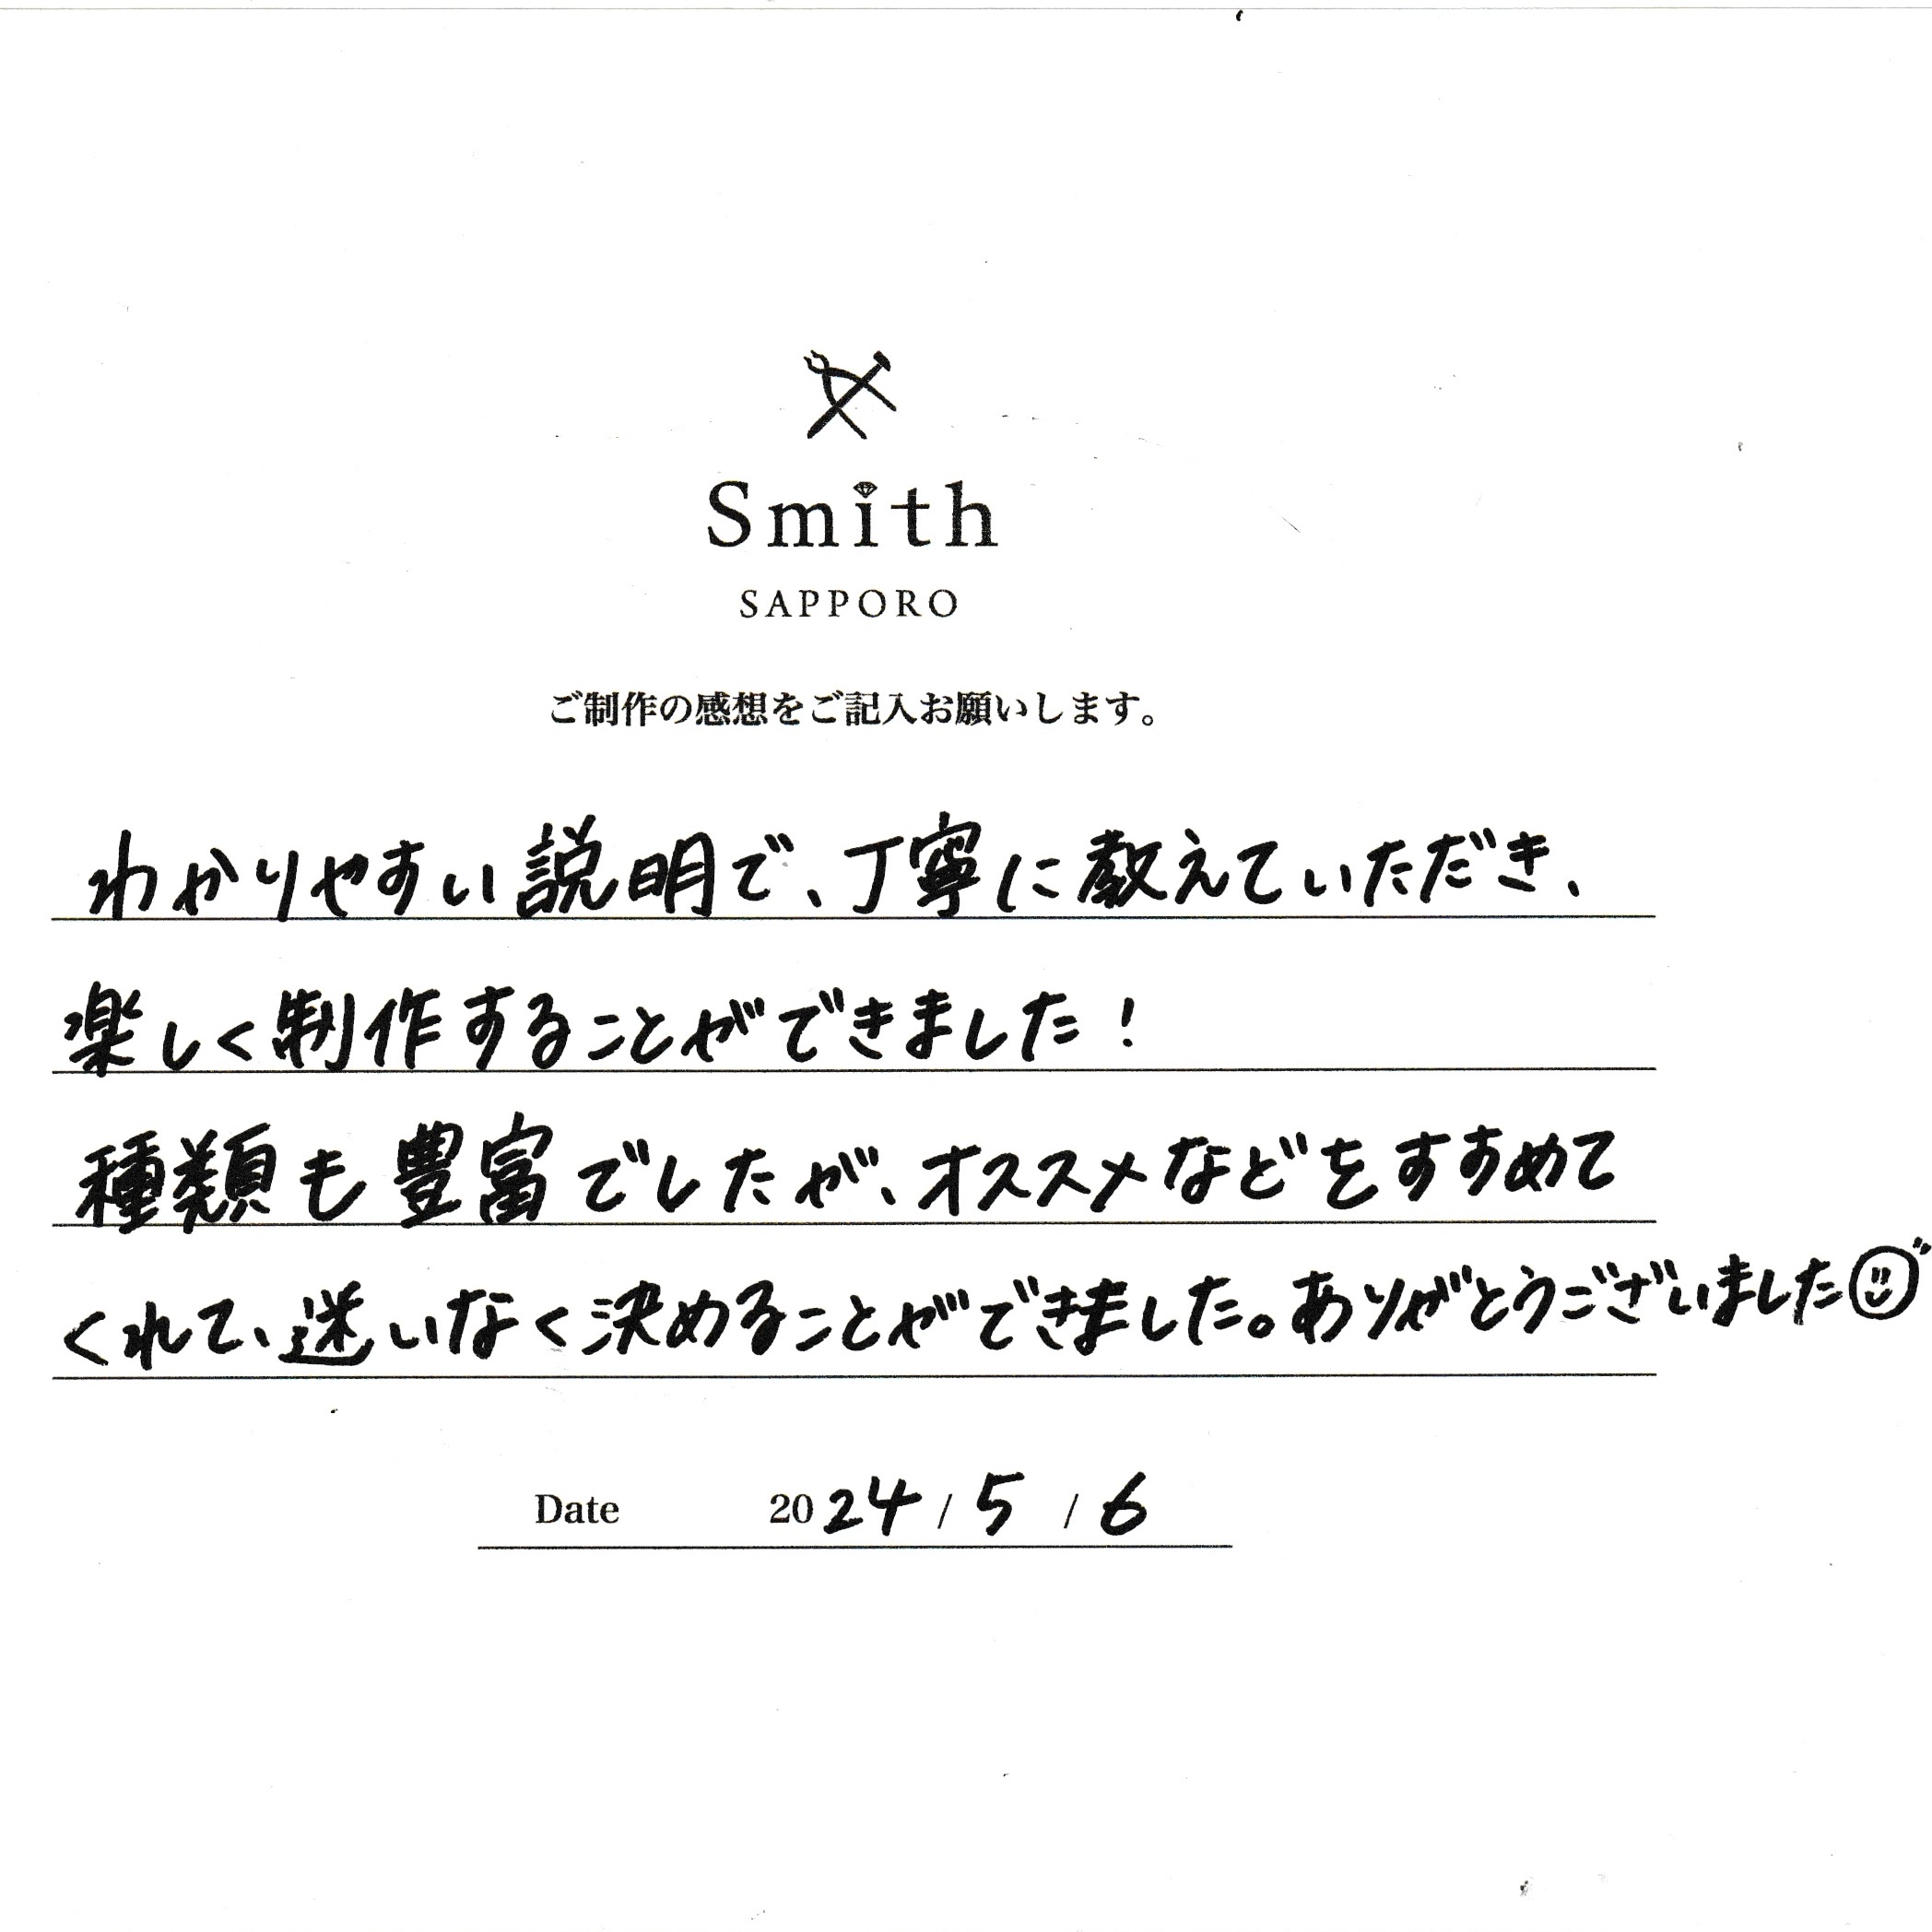 Smith
SAPPORO
ご制作の感想をご記入お願いします。
わかりやすい説明で、丁寧に教えていただき、
楽しく制作することができました！
種類も豊富でしたが、オススメなどをすすめて
くれて、迷いなく決めることができました。ありがとうございました
Date 2024/5/6